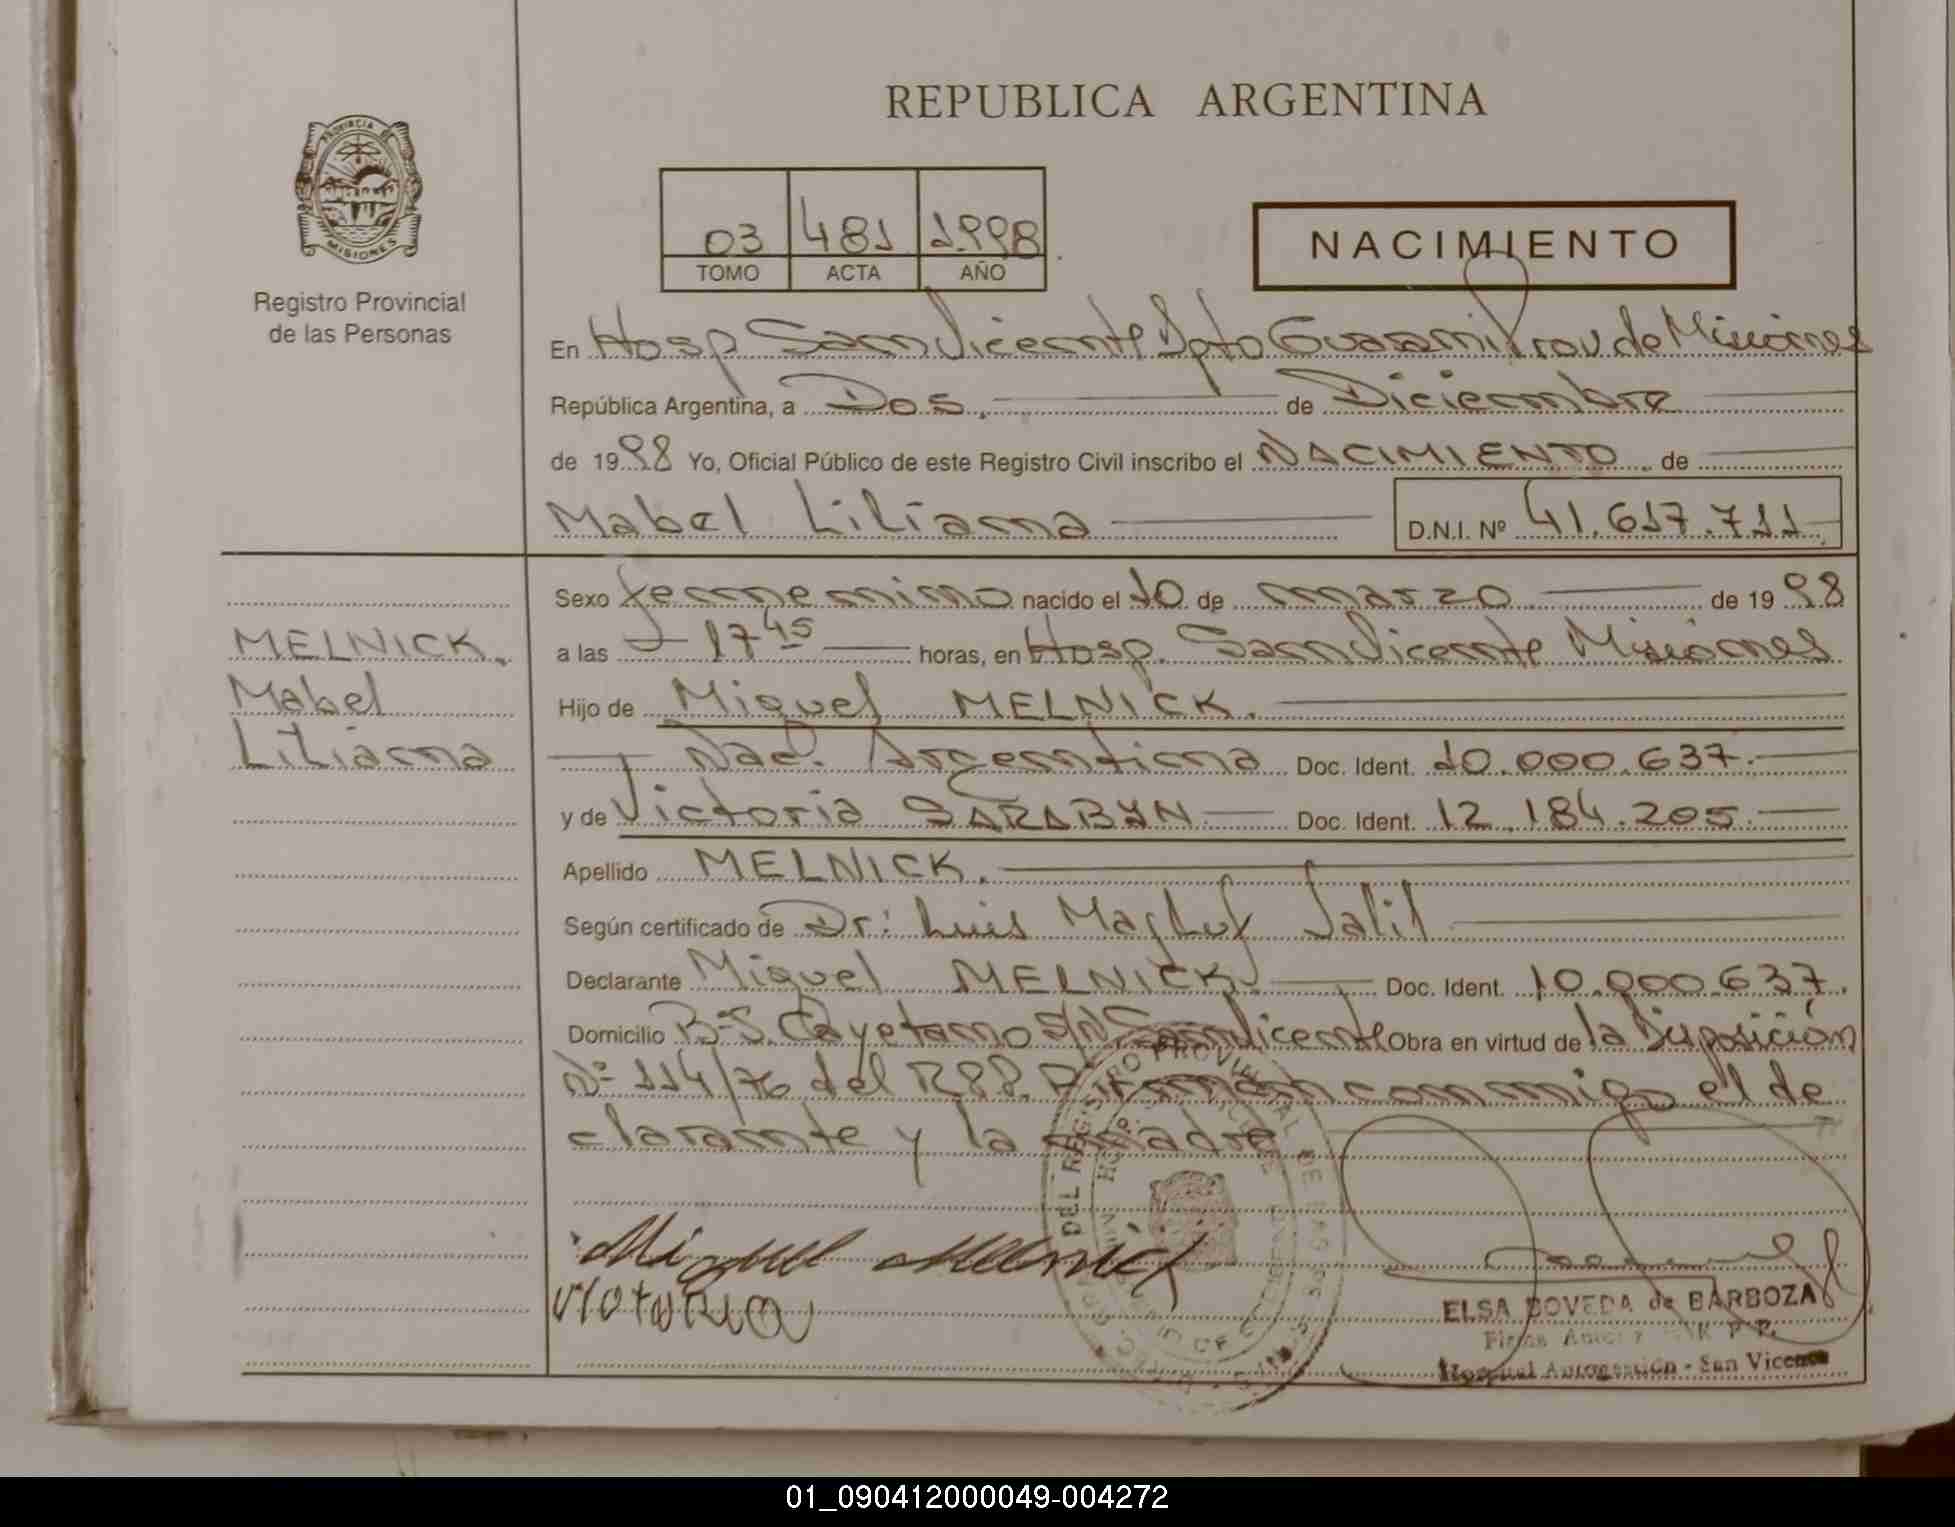 REPUBLICA ARGENTINA
PROVINCIA DE
MISIONES
Registro Provincial
de las Personas
03 481 1998
TOMO ACTA AÑO
NACIMIENTO
En Hosp San Vicente Dpto Guarani Prov de Misiones
República Argentina, a Dos. de Diciembre
de 1998 Yo, Oficial Público de este Registro Civil inscribo el NACIMIENTO de
Mabel Liliana D.N.I. Nº 41.617.711
MELNICK.
Mabel
Liliana
Sexo femenino nacido el 10 de marzo de 1998
a las 17 45 horas, en Hosp. San Vicente Misiones
Hijo de Miguel MELNICK.
Nac. Argentina Doc. Ident. 10.000.637.
y de Victoria SARABYN Doc. Ident. 12.184.205.
Apellido MELNICK.
Según certificado de Dr: Luis Jalil
Declarante Miguel MELNICK. Doc. Ident. 10.000.637.
Domicilio Bº S. Cayetano S/N San Vicente Obra en virtud de la Disposición
Nº 114/76 del R.P.P. Firman conmigo el de
clarante y la madre
Miguel Melnick
victoria
DEL REGISTRO PROVINCIAL DE LAS
ELSA BOVEDA de BARBOZA
Firma R. P. P.
Hospital Autogestión - San Vicente
01_090412000049-004272